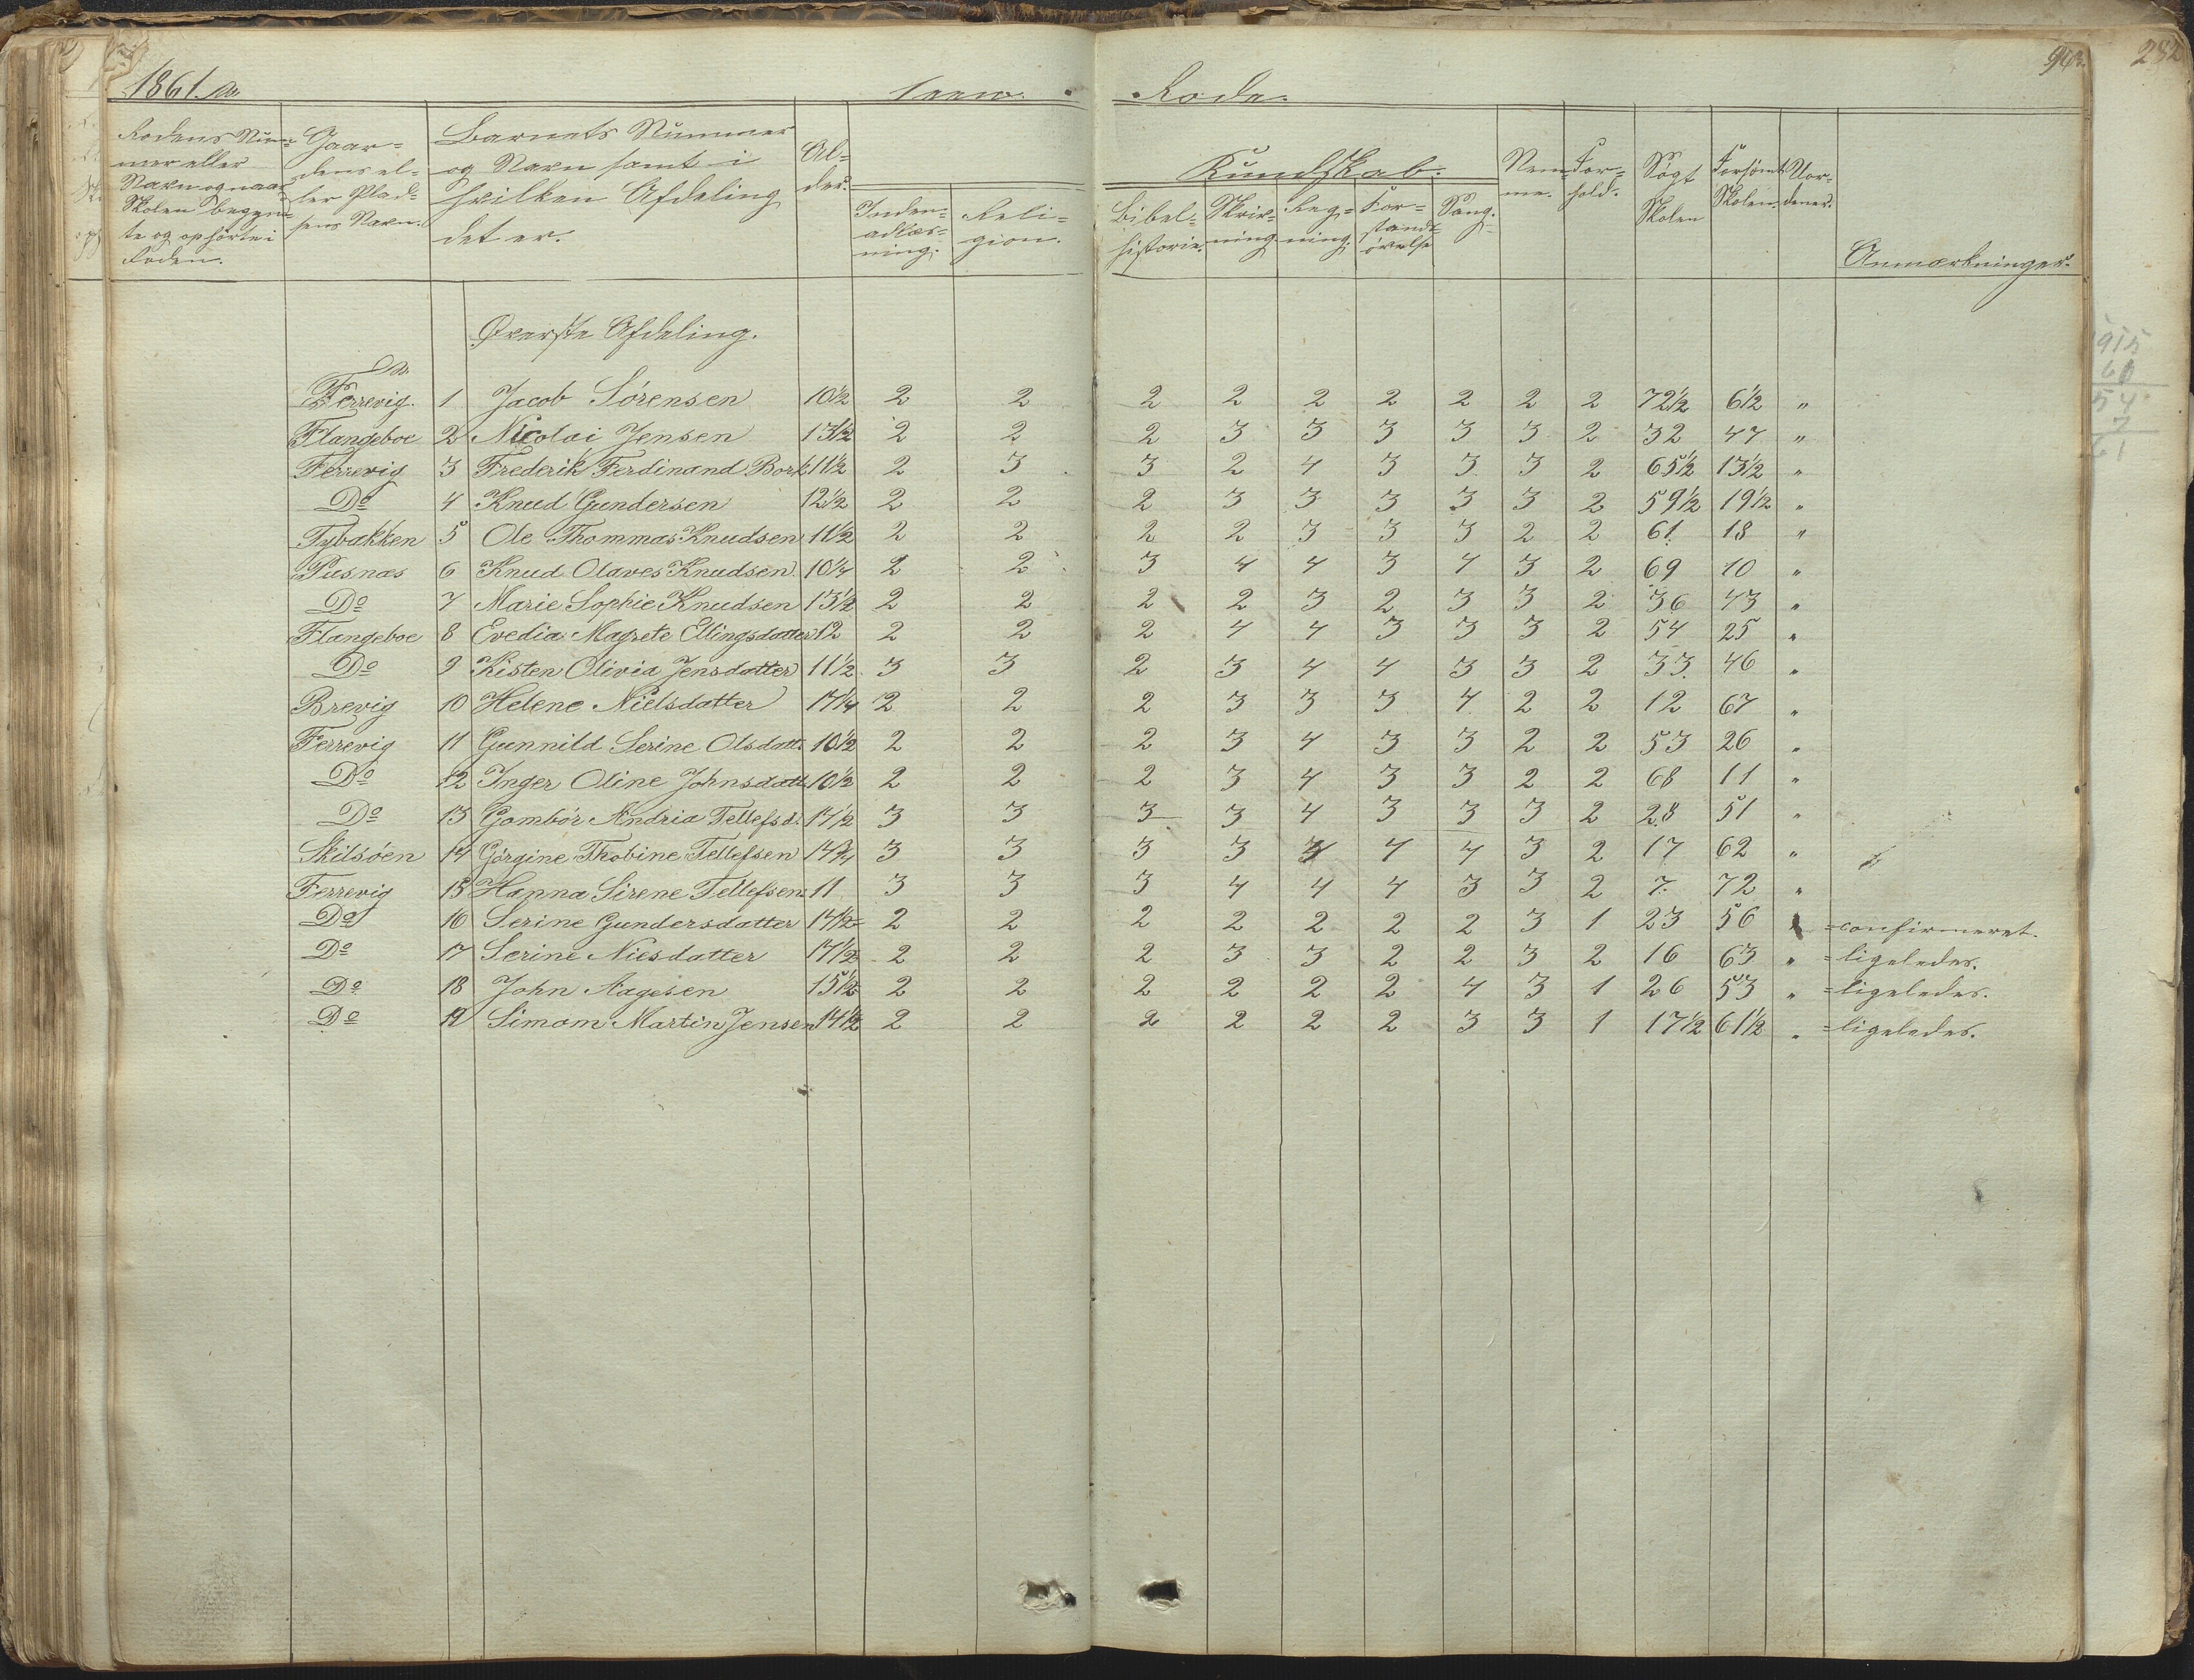 1861.
Rode.
282
Rodens Num-
mer eller
Navn og naar
Skolen begyn-
te og ophörte i
Roden.
Gaar-
dens el-
ler Plad-
sens Navn.
Barnets Nummer
og Navn samt i
hvilken Afdeling
det er.
Al-
der.
Kundskab.
Inden-
adlæs-
ning.
Reli-
gion.
Bibel-
historie.
Skriv-
ning
Reg-
ning.
For-
stands-
övelse
Sang.
Nem-
me.
For-
hold.
Sögt
Skolen
Forsömt
Skolen.
Uor-
dener.
Anmærkninger.
Överste Afdeling.
Ferrevig. 1 Jacob Sörensen 10½ 2 2 2 2 2 2 2 2 2 72½ 6½ "
Flangeboe 2 Nicolai Jensen 13½ 2 2 2 3 3 3 3 3 2 32 47 "
Ferrevig 3 Frederik Ferdinand Bork 11½ 2 3 3 2 4 3 3 3 2 65½ 13½ "
Do 4 Knud Gundersen 12½ 2 2 2 3 3 3 3 3 2 59½ 19½ "
Tybakken 5 Ole Thommas Knudsen 11½ 2 2 2 2 3 3 3 2 2 61 18 "
Pusnæs 6 Knud Olaves Knudsen 10¼ 2 2 3 4 4 3 4 3 2 69 10 "
Do 7 Marie Sophie Knudsen 13½ 2 2 2 2 3 2 3 3 2 36 43 "
Flangeboe 8 Evedia Magrete Ellingsdatter 12 2 2 2 4 4 3 3 3 2 54 25 "
Do 9 Kisten Olivia Jensdatter 11½ 3 3 2 3 4 4 3 3 2 33 46 "
Brevig 10 Helene Nielsdatter 14¼ 2 2 2 3 3 3 4 2 2 12 67 "
Ferrevig 11 Gunnild Serine Olsdatt. 10½ 2 2 2 3 4 3 3 2 2 53 26 "
Do 12 Inger Oline Johnsdatt. 10½ 2 2 2 3 4 3 3 2 2 68 11 "
Do 13 Gombör Andria Tellefsd. 14½ 3 3 3 3 4 3 3 3 2 28 51 "
Skilsöen 14 Görgine Thobine Tellefsen 14¾ 3 3 3 3 4 4 4 3 2 17 62 "
Ferrevig 15 Hanna Sirene Tellefsen 11 3 3 3 4 4 4 3 3 2 7 72 "
Do 16 Serine Gundersdatter 14½ 2 2 2 2 2 2 2 3 1 23 56 " =confirmeret.
Do 17 Serine Niesdatter 14½ 2 2 2 3 3 2 2 3 2 16 63 " =ligeledes.
Do 18 John Aagesen 15½ 2 2 2 2 2 2 4 3 1 26 53 " =ligeledes.
Do 19 Simom Martin Jensen 14½ 2 2 2 2 2 2 3 3 1 17½ 61½ " =ligeledes.